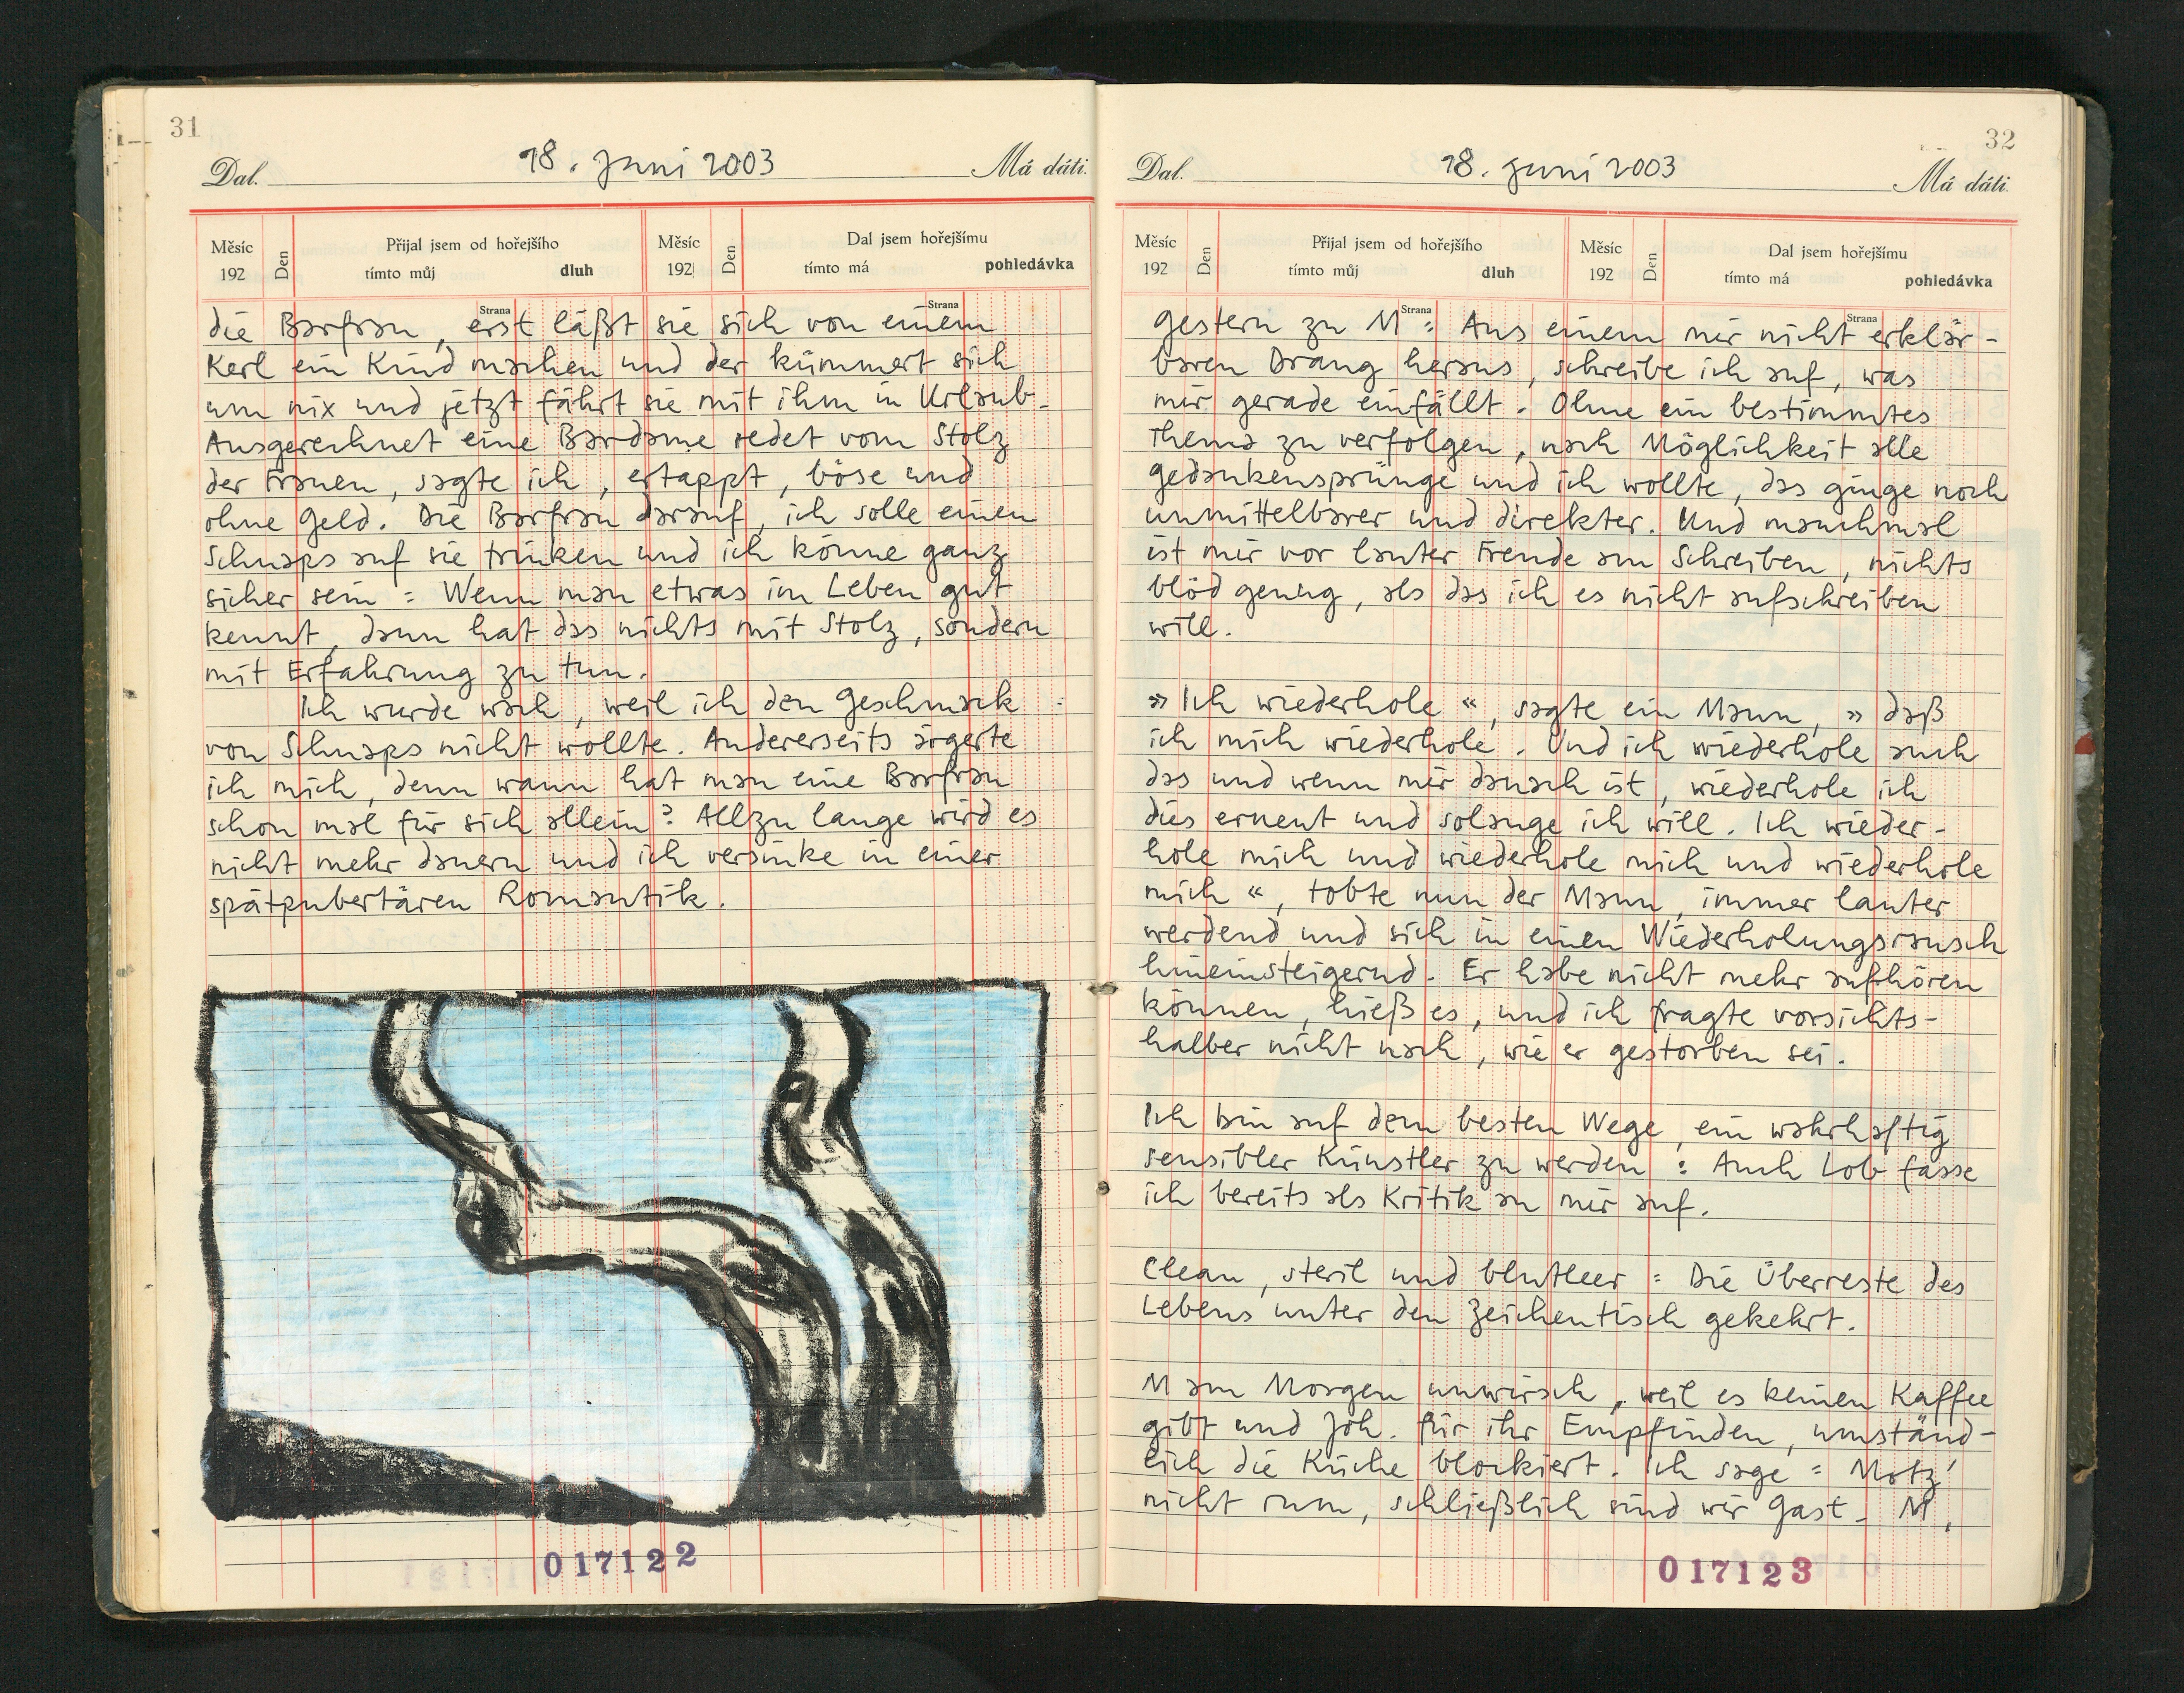 31
Dal. 18. Juni 2003 Má dáti.
Měsíc 192 Den Přijal jsem od hořejšího tímto můj dluh Měsíc 192 Den Dal jsem hořejšímu tímto má pohledávka
Strana Strana
die Barfrau, erst läßt sie sich von einem
Kerl ein Kind machen und der kümmert sich
um nix und jetzt fährt sie mit ihm in Urlaub.
Ausgerechnet eine Bardame redet vom Stolz
der Frauen, sagte ich, ertappt, böse und
ohne Geld. Die Barfrau darauf, ich solle einen
Schnaps auf sie trinken und ich könne ganz
sicher sein: Wenn man etwas im Leben gut
kennt, dann hat das nichts mit Stolz, sondern
mit Erfahrung zu tun.
Ich wurde wach, weil ich den Geschmack
von Schnaps nicht wollte. Andererseits ärgerte
ich mich, denn wann hat man eine Barfrau
schon mal für sich allein? Allzu lange wird es
nicht mehr dauern und ich versinke in einer
spätpubertären Romantik.
017122
32
Dal. 18. Juni 2003 Má dáti.
Měsíc 192 Den Přijal jsem od hořejšího tímto můj dluh Měsíc 192 Den Dal jsem hořejšímu tímto má pohledávka
Strana Strana
Gestern zu M: Aus einem mir nicht erklär-
baren Drang heraus, schreibe ich auf, was
mir gerade einfällt. Ohne ein bestimmtes
Thema zu verfolgen, nach Möglichkeit alle
Gedankensprünge und ich wollte, das ginge noch
unmittelbarer und direkter. Und manchmal
ist mir vor lauter Freude am Schreiben, nichts
blöd genug, als das ich es nicht aufschreiben
will.
»Ich wiederhole«, sagte ein Mann, »daß
ich mich wiederhole. Und ich wiederhole auch
das und wenn mir danach ist, wiederhole ich
dies erneut und solange ich will. Ich wieder-
hole mich und wiederhole mich und wiederhole
mich«, tobte nun der Mann, immer lauter
werdend und sich in einen Wiederholungsrausch
hineinsteigernd. Er habe nicht mehr aufhören
können, hieß es, und ich fragte vorsichts-
halber nicht nach, wie er gestorben sei.
Ich bin auf dem besten Wege, ein wahrhaftig
sensibler Künstler zu werden: Auch Lob fasse
ich bereits als Kritik an mir auf.
Clean, steril und blutleer: Die Überreste des
Lebens unter den Zeichentisch gekehrt.
M am Morgen unwirsch, weil es keinen Kaffee
gibt und Joh. für ihr Empfinden, umständ-
lich die Küche blockiert. Ich sage: Motz'
nicht rum, schließlich sind wir Gast. M,
017123